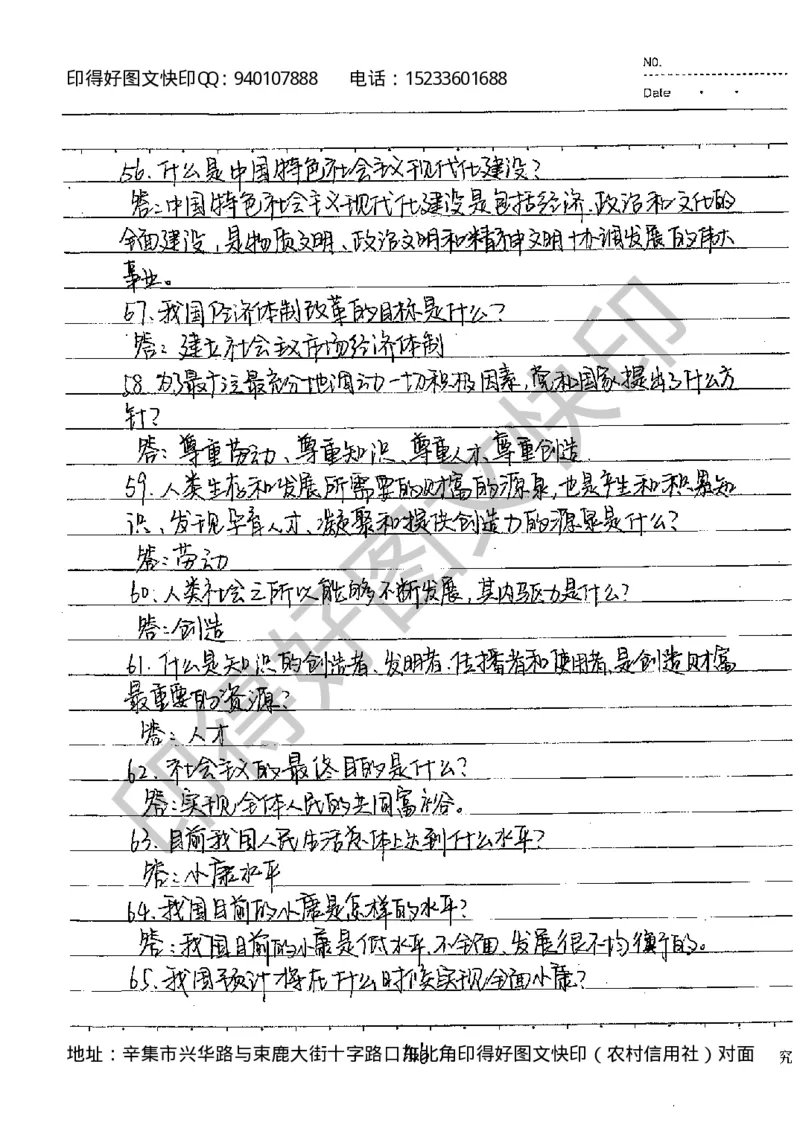 NO.
印得好图文快印QQ：940107888 电话：15233601688
Date
56.什么是中国特色社会主义现代化建设？
答：中国特色社会主义现代化建设是包括经济、政治和文化的
全面建设，是物质文明、政治文明和精神文明协调发展的伟大
事业。
57.我国经济体制改革的目标是什么？
答：建立社会主义市场经济体制
58.为了最广泛最充分地调动一切积极因素，党和国家提出了什么方
针？
答：尊重劳动、尊重知识、尊重人才、尊重创造.
59.人类生存和发展所需要的财富的源泉，也是产生和积累知
识、发现孕育人才、凝聚和提供创造力的源泉是什么？
答：劳动
60.人类社会之所以能够不断发展，其内驱力是什么？
答：创造
61.什么是知识的创造者、发明者、传播者和使用者，是创造财富
最重要的资源？
答：人才
62.社会主义的最终目的是什么？
答：实现全体人民的共同富裕。
63.目前我国人民生活总体上达到什么水平？
答：小康水平
64.我国目前的小康是怎样的水平？
答：我国目前的小康是低水平、不全面、发展很不均衡的。
65.我国预计将在什么时候实现全面小康？
地址：辛集市兴华路与束鹿大街十字路口东北角印得好图文快印（农村信用社）对面 究
印得好图文快印